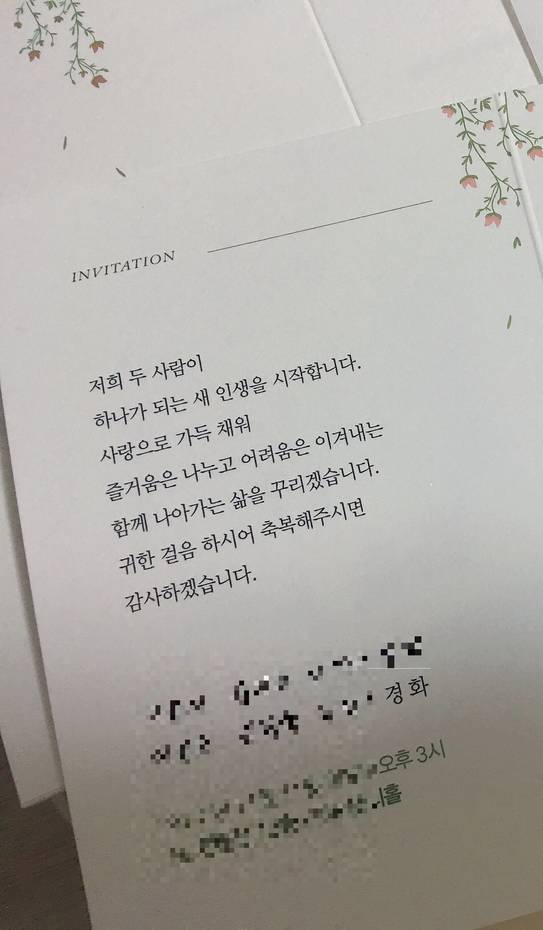 INVITATION
저희 두 사람이
하나가 되는 새 인생을 시작합니다.
사랑으로 가득 채워
즐거움은 나누고 어려움은 이겨내는
함께 나아가는 삶을 꾸리겠습니다.
귀한 걸음 하시어 축복해주시면
감사하겠습니다.
경화
오후 3시
홀